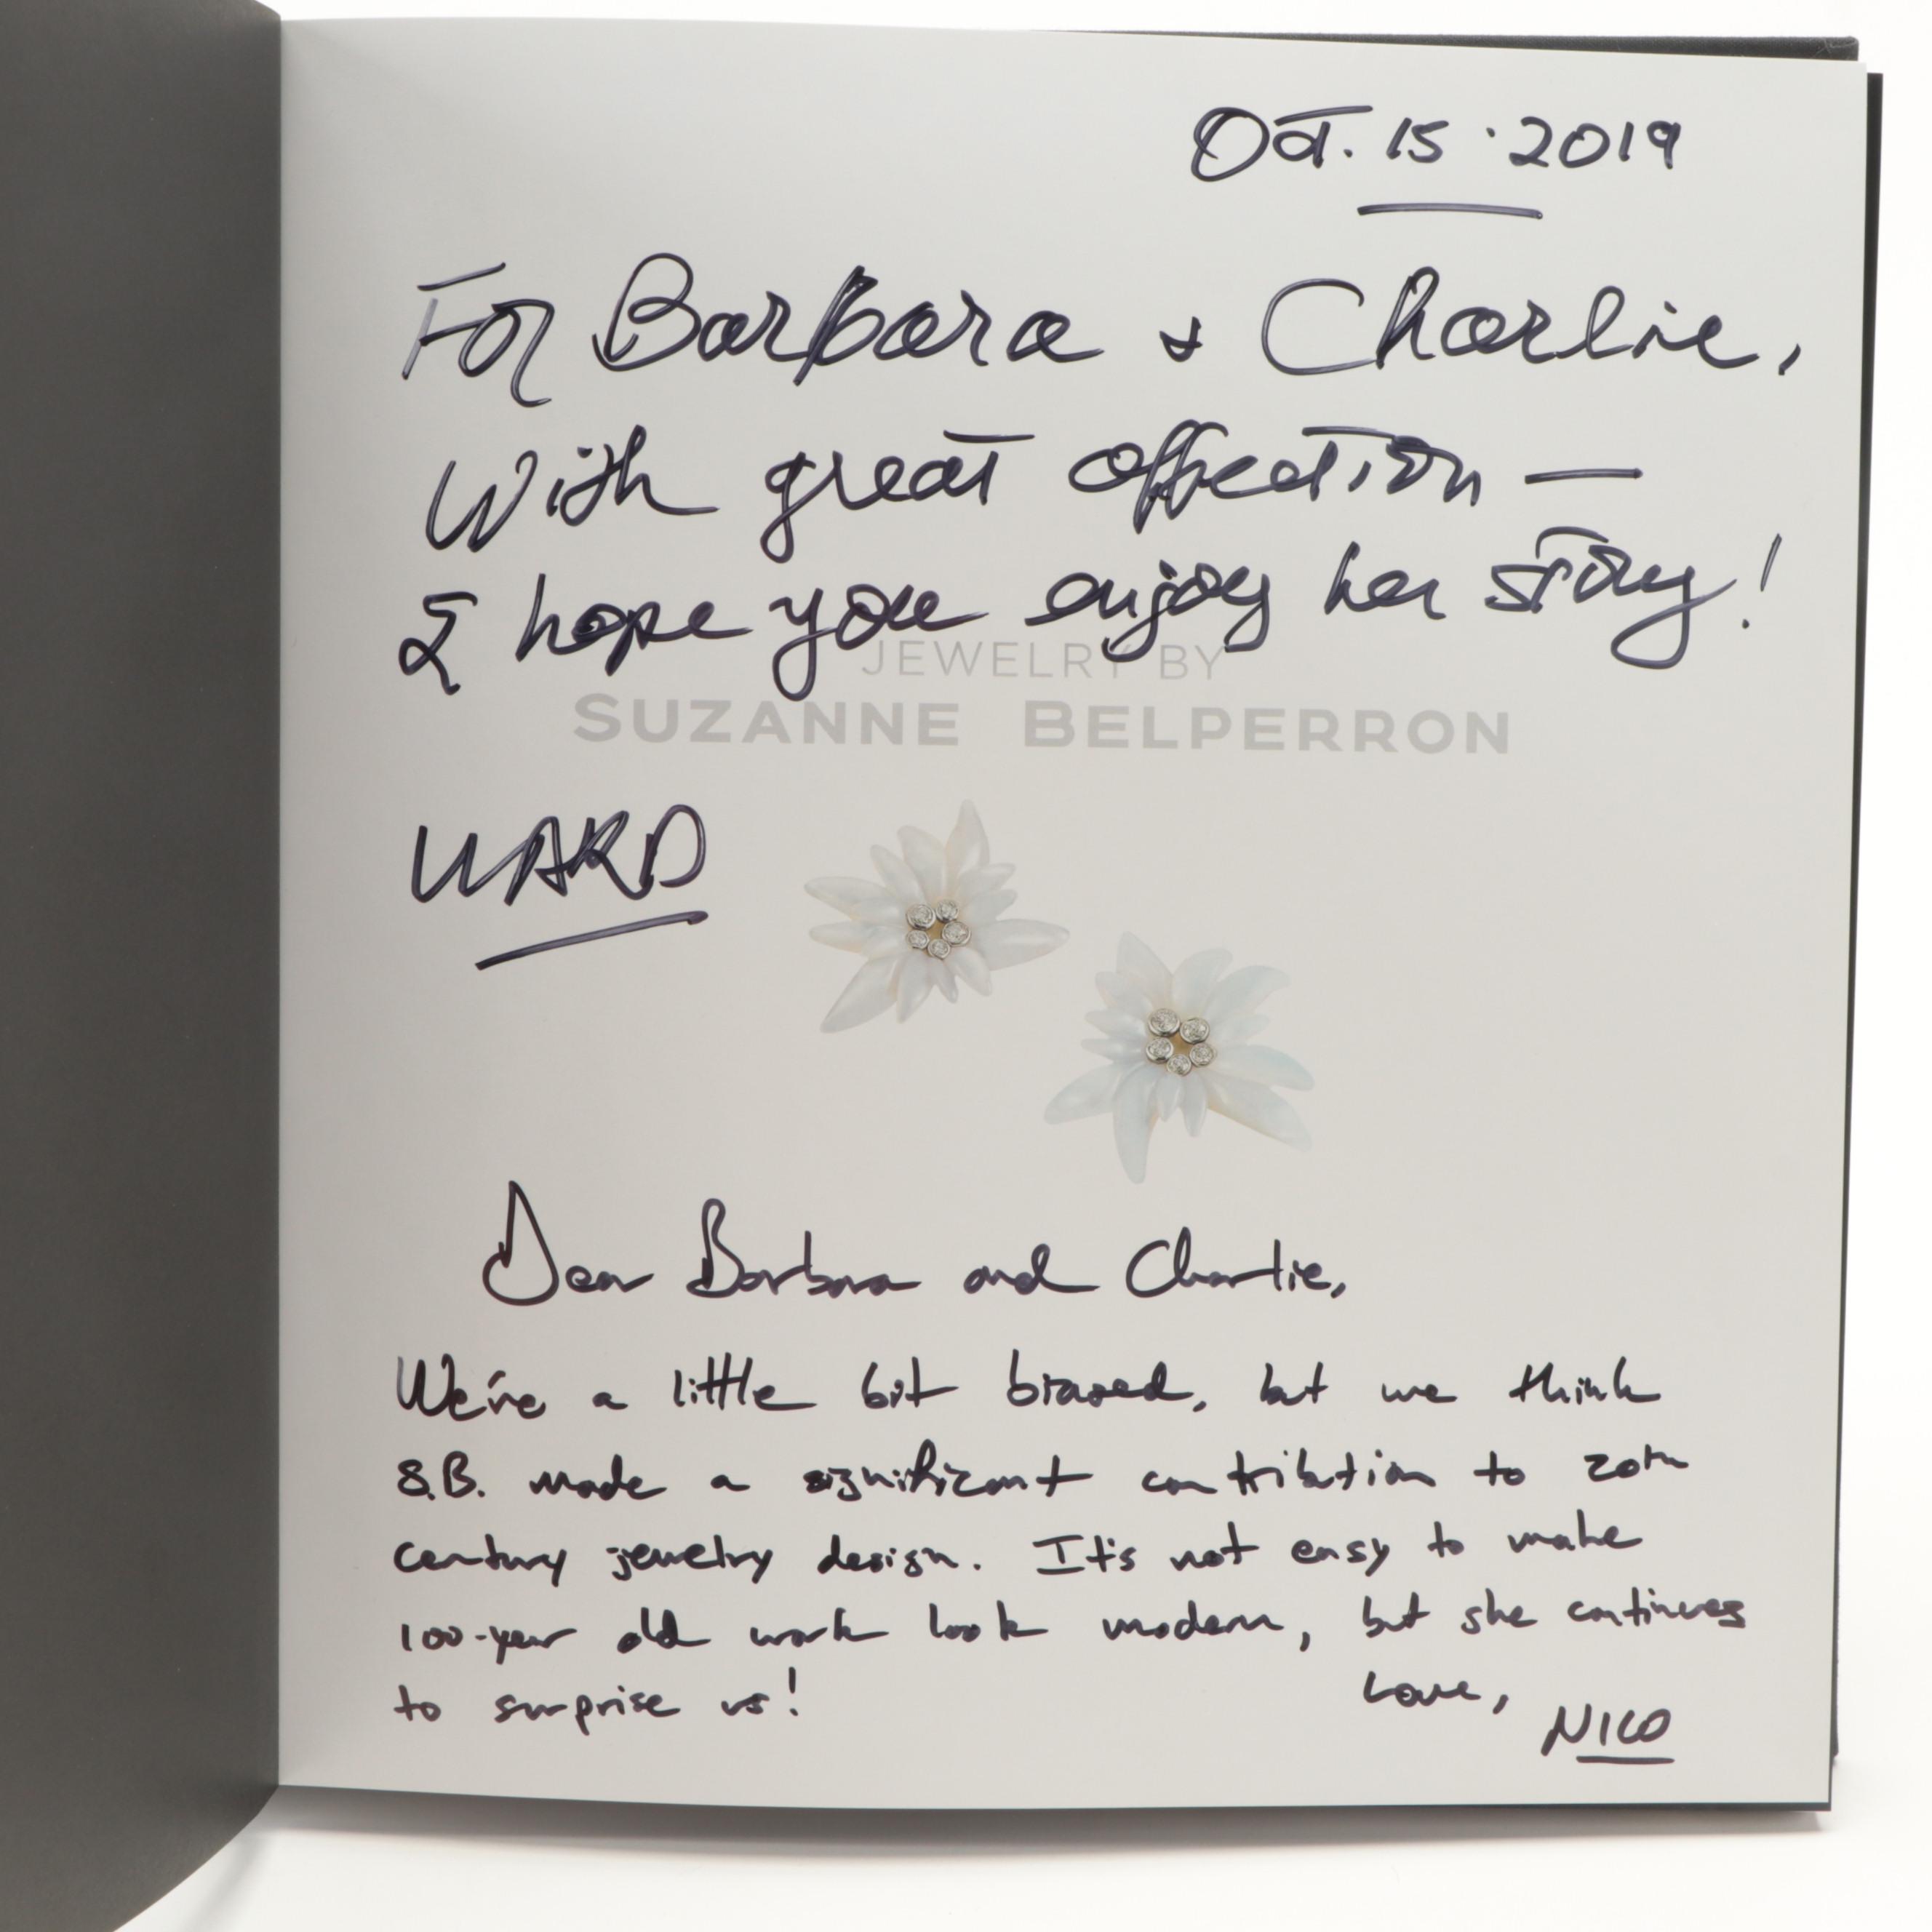 Oct. 15 · 2019
For Barbara & Charlie,
With great affection —
I hope you enjoy her story!
JEWELRY BY
SUZANNE BELPERRON
WARD
Dear Barbara and Charlie,
We're a little bit biased, but we think
S.B. made a significant contribution to 20th
century jewelry design. It's not easy to make
100-year old work look modern, but she continues
to surprise us!
Love,
NICO